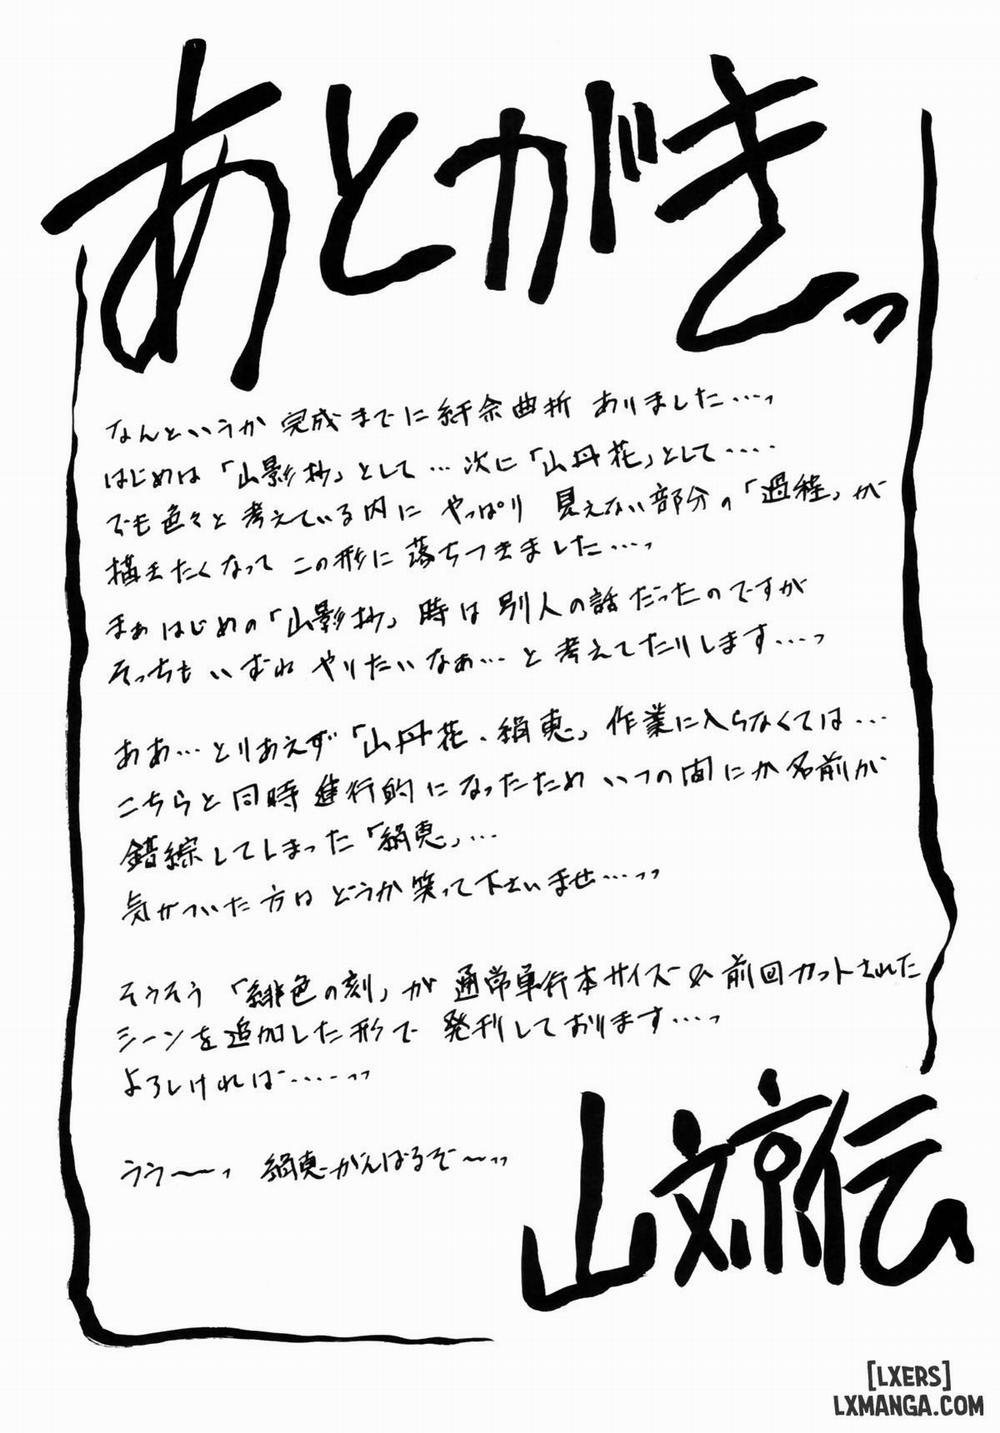 あとがきっ
なんというか 完成までに紆余曲折 ありました…っ
はじめは「山影抄」として…次に「山丹花」として‥‥
でも色々と 考えている内に やっぱり 見えない部分の「過程」が
描きたくなって この形に 落ちつきました…っ
まぁはじめの「山影抄」時は 別人の話だったのですが
そっちもいずれ やりたいなぁ…と 考えてたりします…っ
ああ…とりあえず「山丹花・絹恵」作業に入らなくては…
こちらと同時進行的になったため いつの間にか名前が
錯綜してしまった「絹恵」…
気がついた方は どうか笑って下さいませ…っっ
そうそう「緋色の刻」が 通常単行本サイズ& 前回カットされた
シーンを追加した形で 発刊しております…っ
よろしければ……っっ
うう～～っ 絹恵がんばるぞ～っっ
山文京伝
[LXERS]
LXMANGA.COM